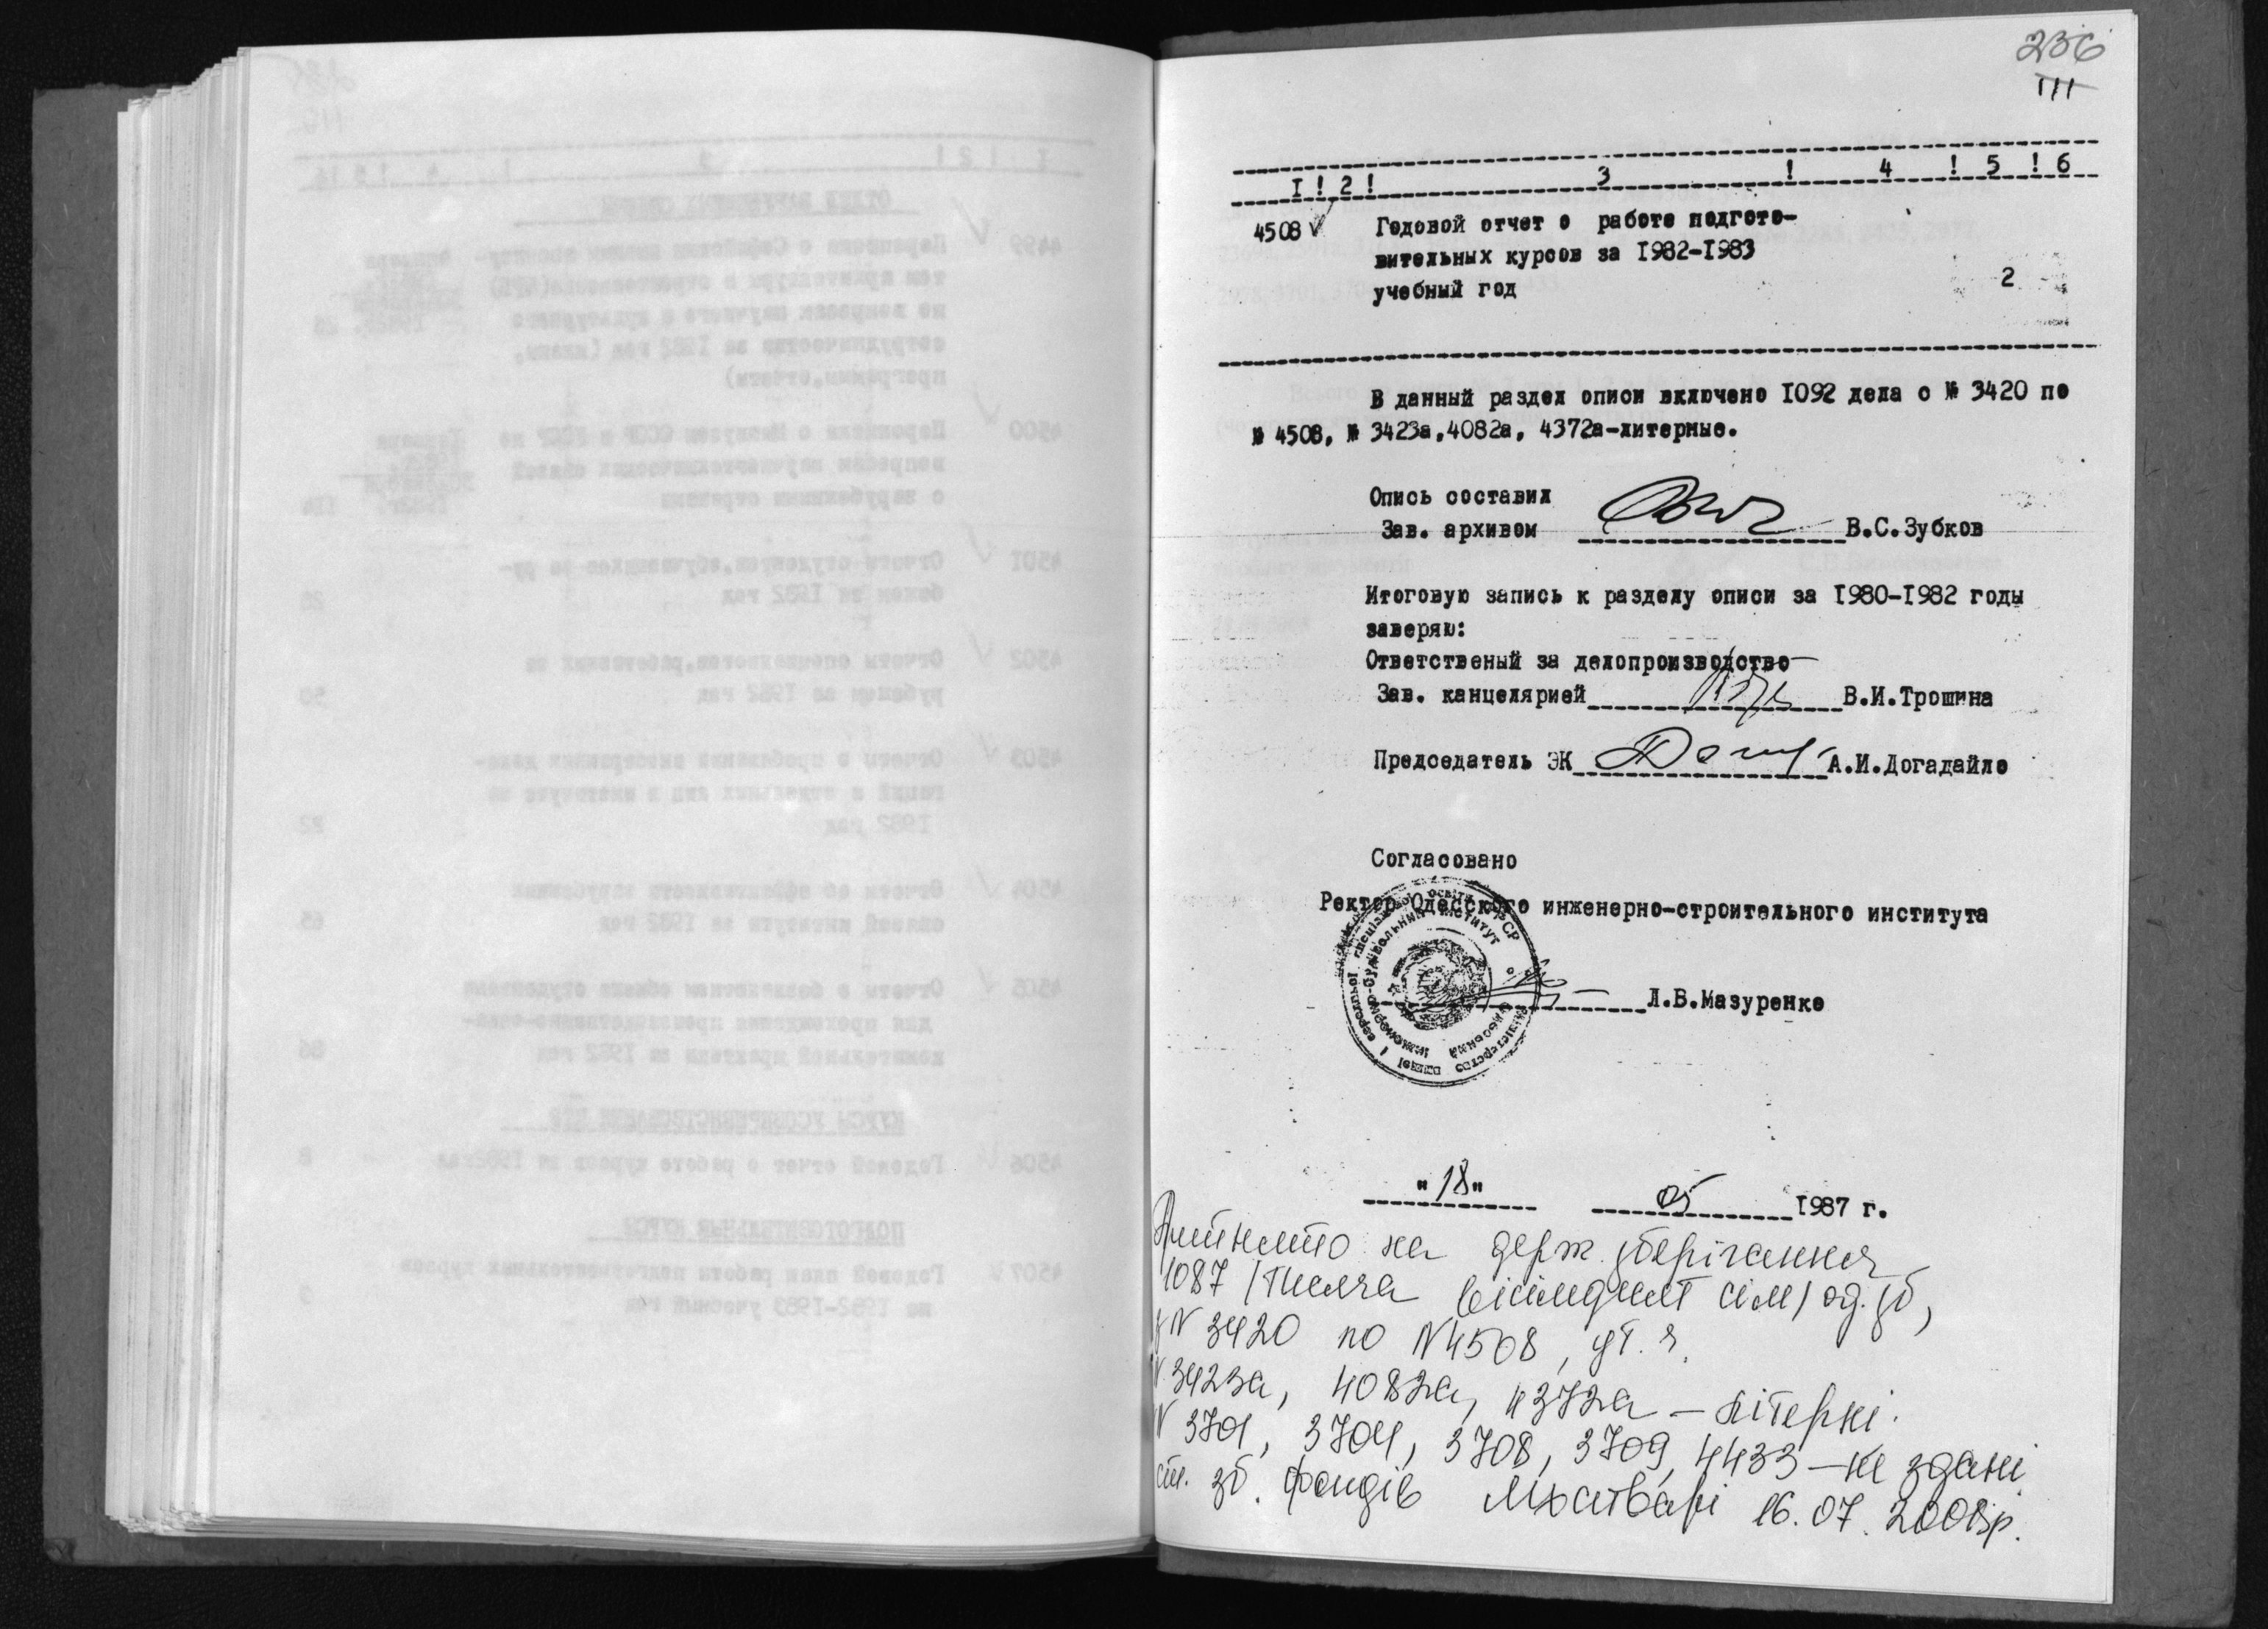 236
111
I ! 2 ! 3 ! 4 ! 5 ! 6
4508 √ Годовой отчет о работе подгото-
вительных курсов за 1982-1983
учебный год 2
В данный раздел описи включено 1092 дела с № 3420 по
№ 4508, № 3423а,4082а, 4372а-литерные.
Опись составил
Зав. архивом В.С.Зубков
Итоговую запись к разделу описи за 1980-1982 годы
заверяю:
Ответственый за делопроизводство-
Зав. канцелярией В.И.Трошина
Председатель ЭК А.И.Догадайло
Согласовано
Ректор Одесского инженерно-строительного института
Л.В.Мазуренко
"18" 05 1987 г.
Прийнято на держ. зберігання
1087 /тисяча вісімдесят сім/ од. зб,
з N 3420 по N 4508, у т. ч.
N 3423а, 4082а, 4372а – літерні.
N 3701, 3704, 3708, 3709, 4433 – не здані.
ст. зб. фондів 16.07.2008р.